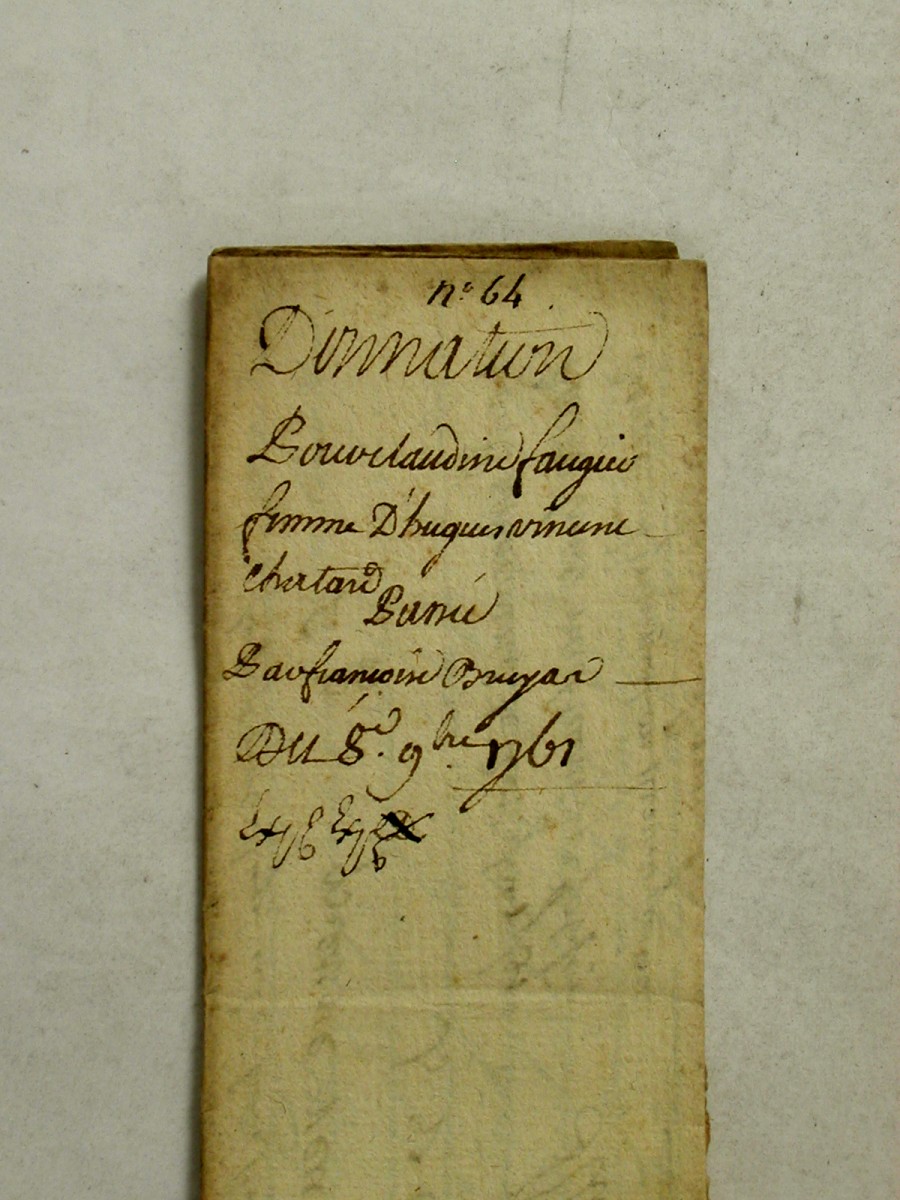 n° 64
Donnation
Pour claudine faugier
femme D'hugues vincent
chatard
Passé
Par françoise Bruyar
Du 8e. 9bre 1761